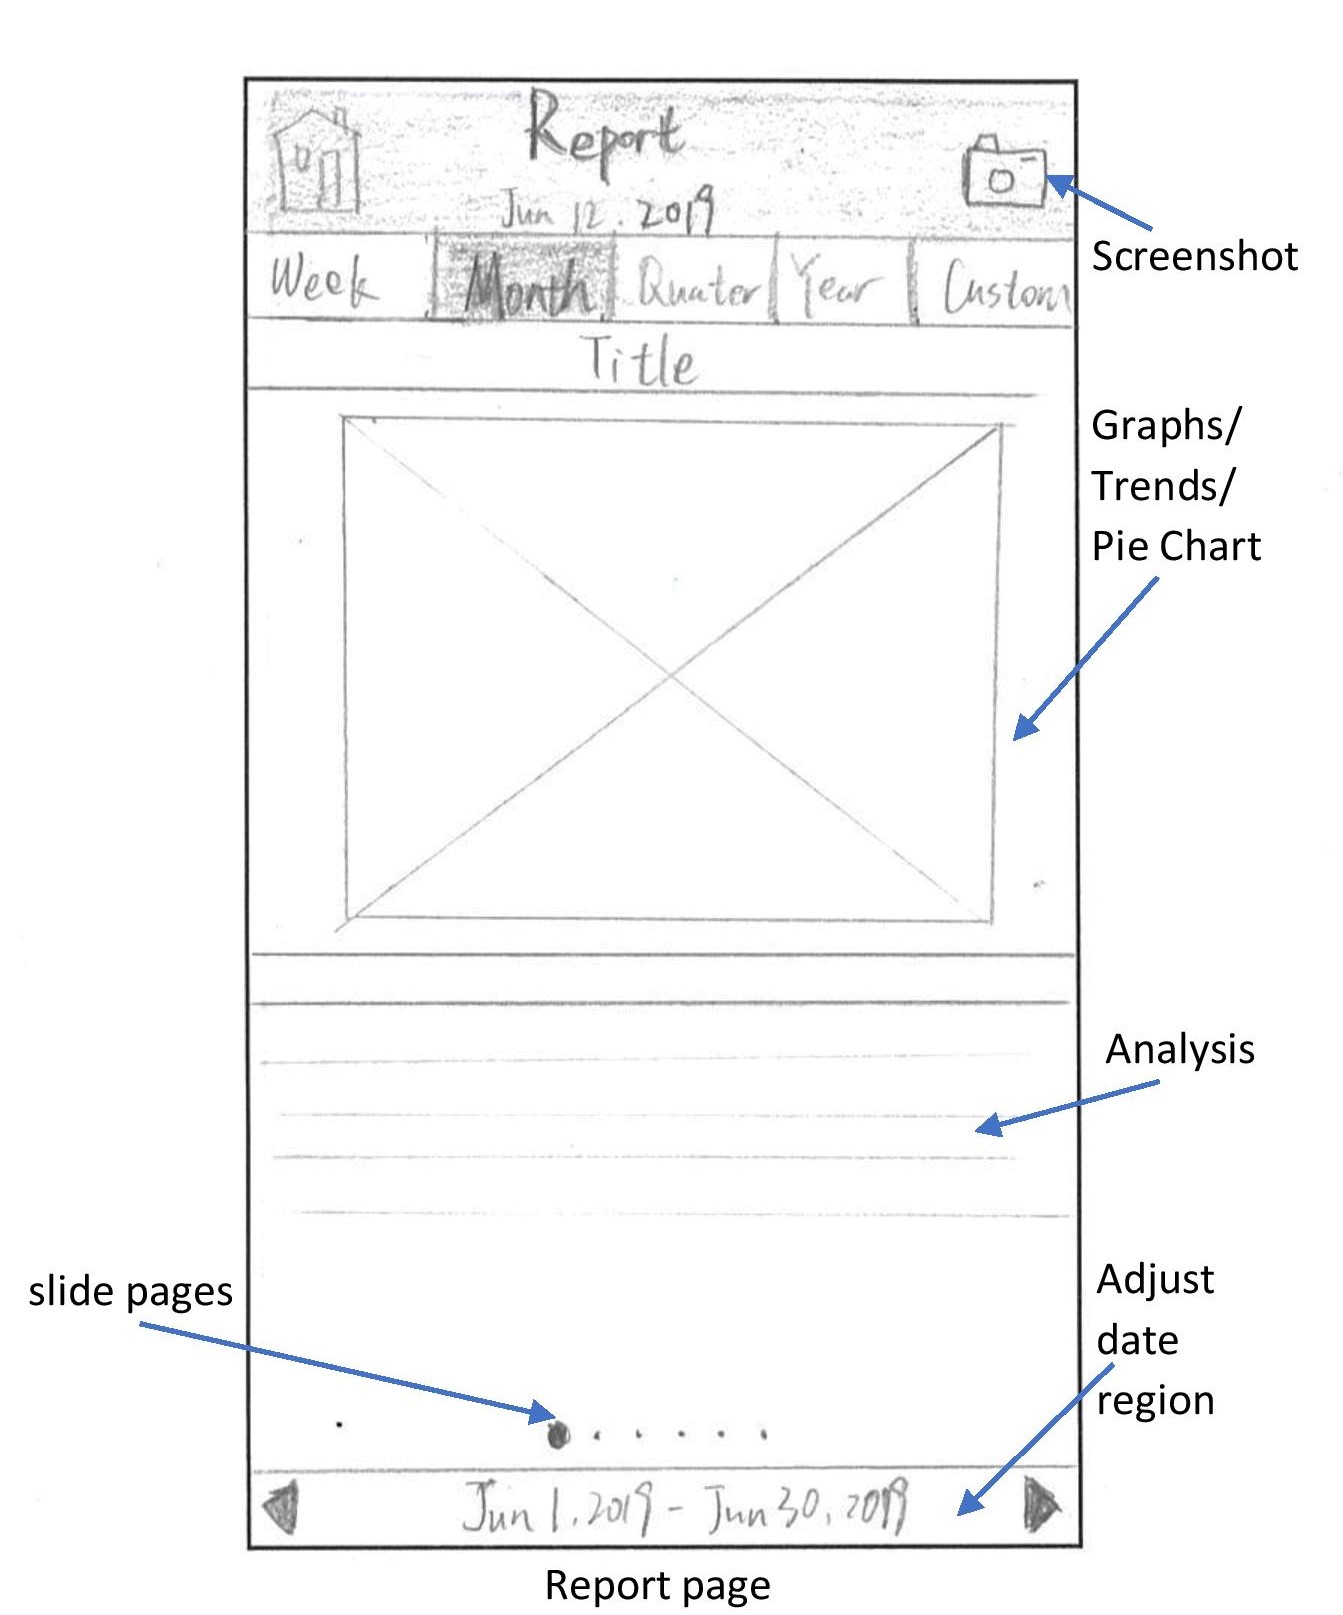 Report
Jun 12. 2019
Screenshot
Week Month Quater Year Custom
Title
Graphs/
Trends/
Pie Chart
Analysis
slide pages
Adjust
date
region
Jun 1, 2019 - Jun 30, 2019
Report page